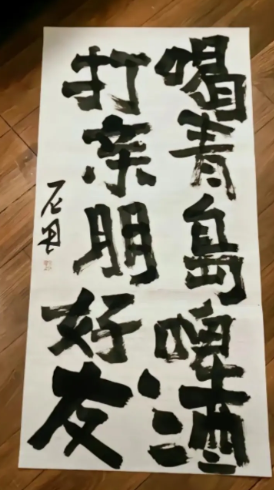 喝青岛啤酒
打亲朋好友
石开